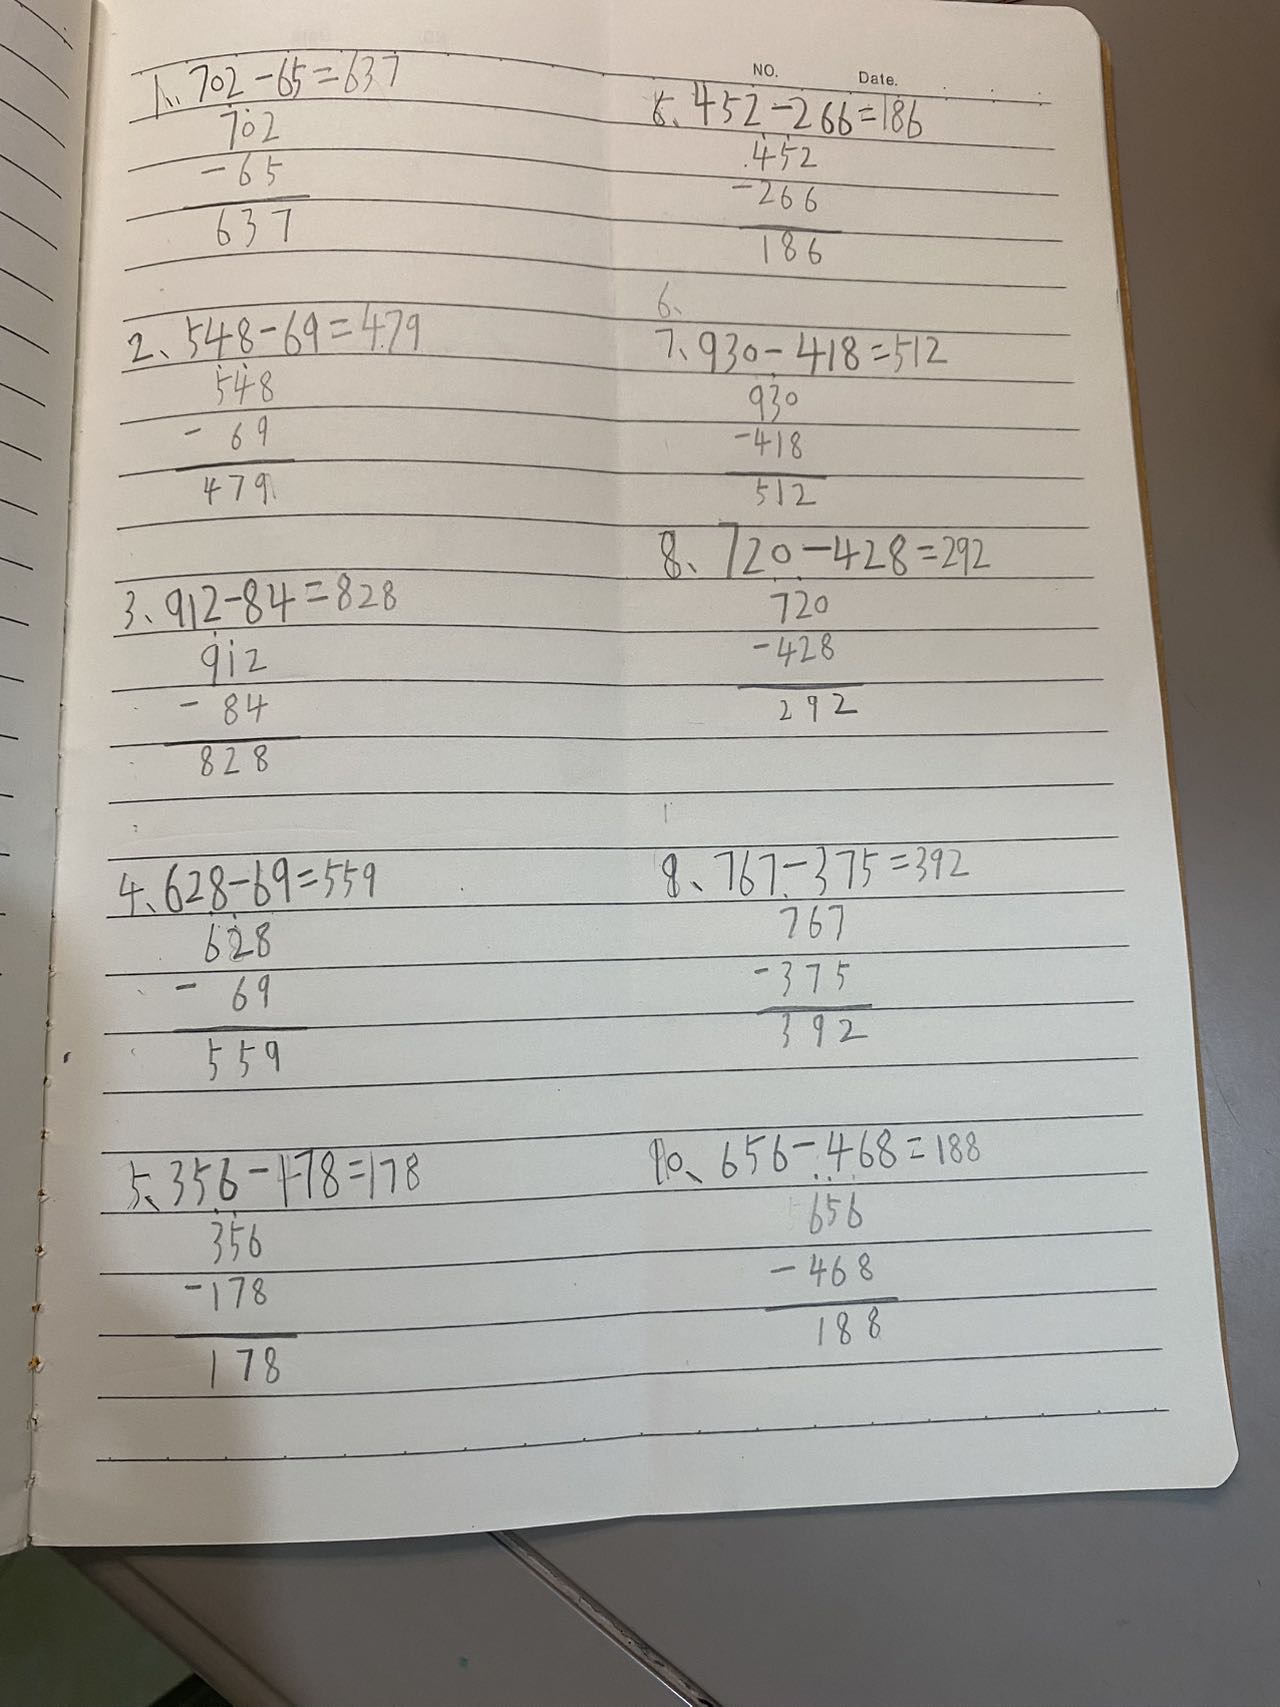 1、702-65=637
702
-65
637
2、548-69=479
548
- 69
479
3、912-84=828
912
- 84
828
4、628-69=559
628
- 69
559
5、356-178=178
356
-178
178
NO. Date.
6、452-266=186
452
-266
186
6、
7、930-418=512
930
-418
512
8、720-428=292
720
-428
292
9、767-375=392
767
-375
392
10、656-468=188
656
-468
188